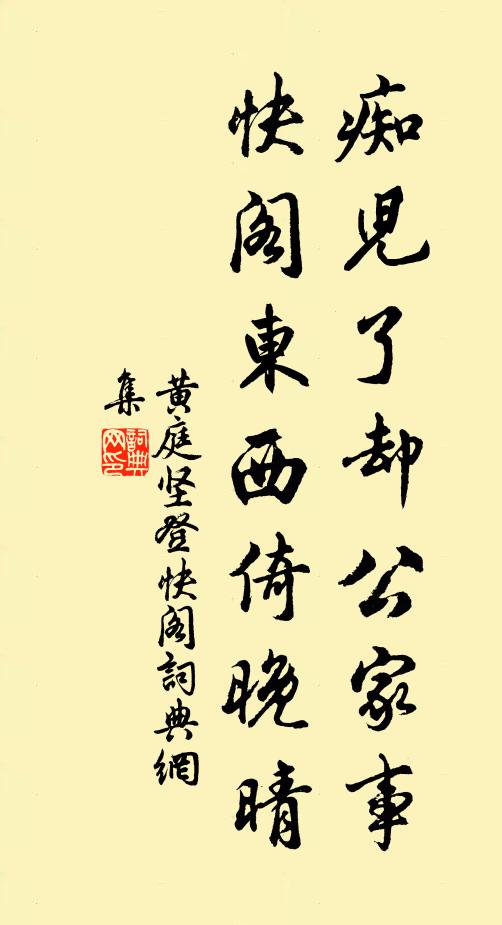 痴兒了却公家事
快阁東西倚晚晴
黄庭坚登快阁詞典網
集
詞典
网印